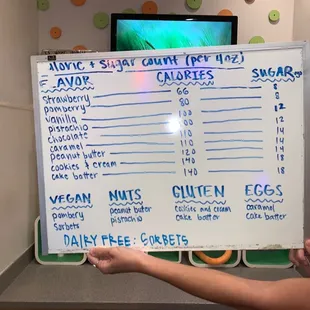 aloric + Sugar count (per 4oz)
AVOR CALORIES SUGAR
strawberry 66 8
pomberry 80 8
vanilla 100 12
pistachio 100 12
chocolate 110 14
caramel 110
peanut butter 120 14
cookies & cream 140 14
cake batter 140 18
VEGAN NUTS GLUTEN EGGS
pombery peanut buter cookies and cream caramel
sorbets pistachio cake batter cake batter
DAIRY FREE: SORBETS